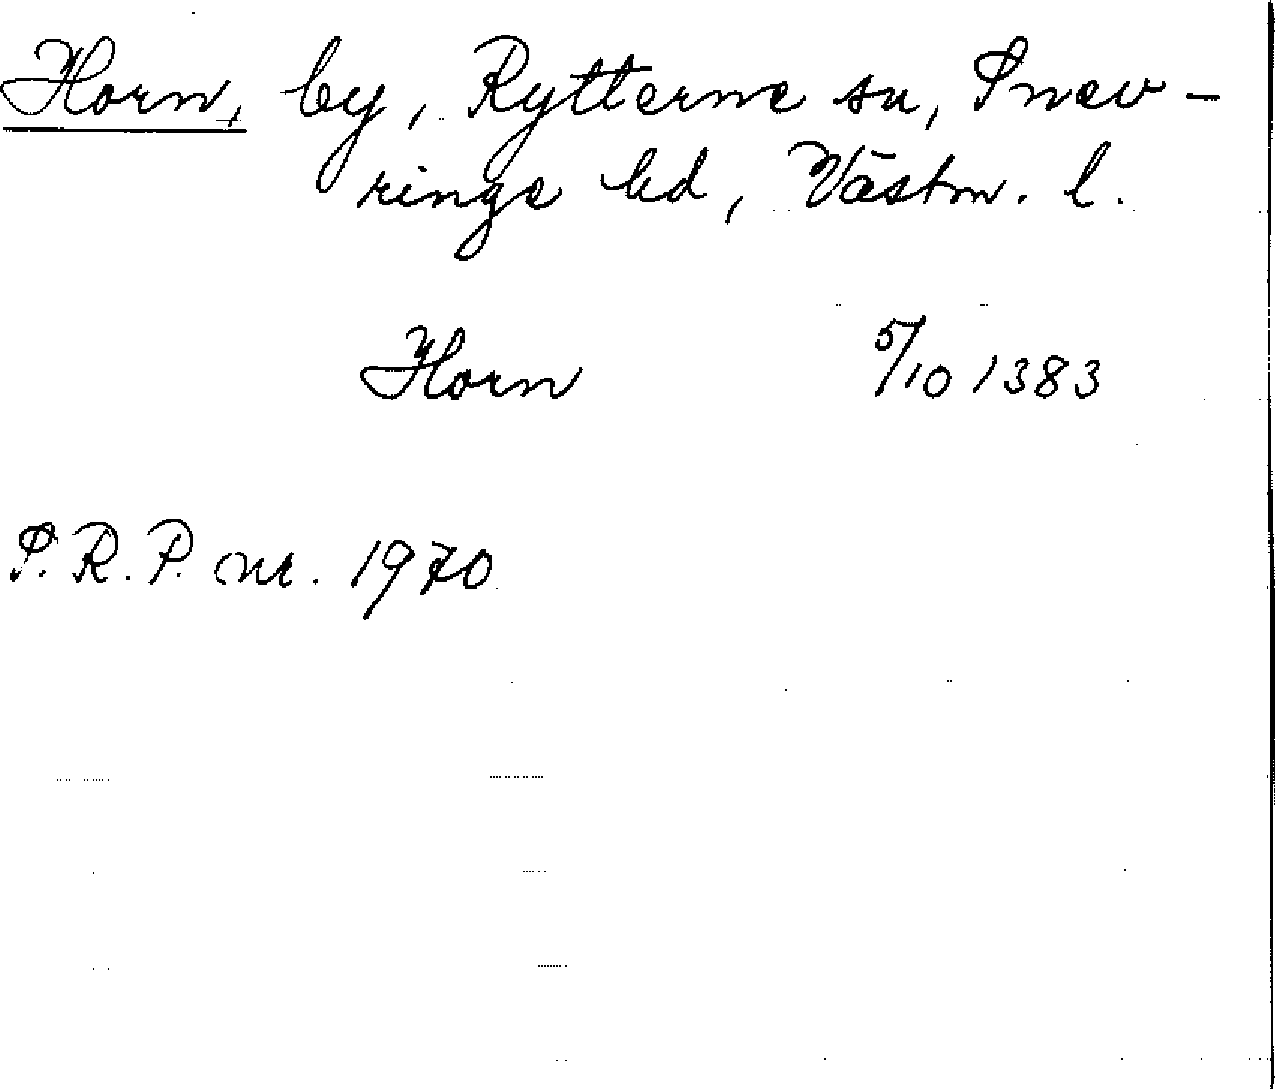 Horn, by, Rytterne sn, Snev-
ringe hd, Västm. l.
Horn 5/10 1383
S.R.P. nr. 1970